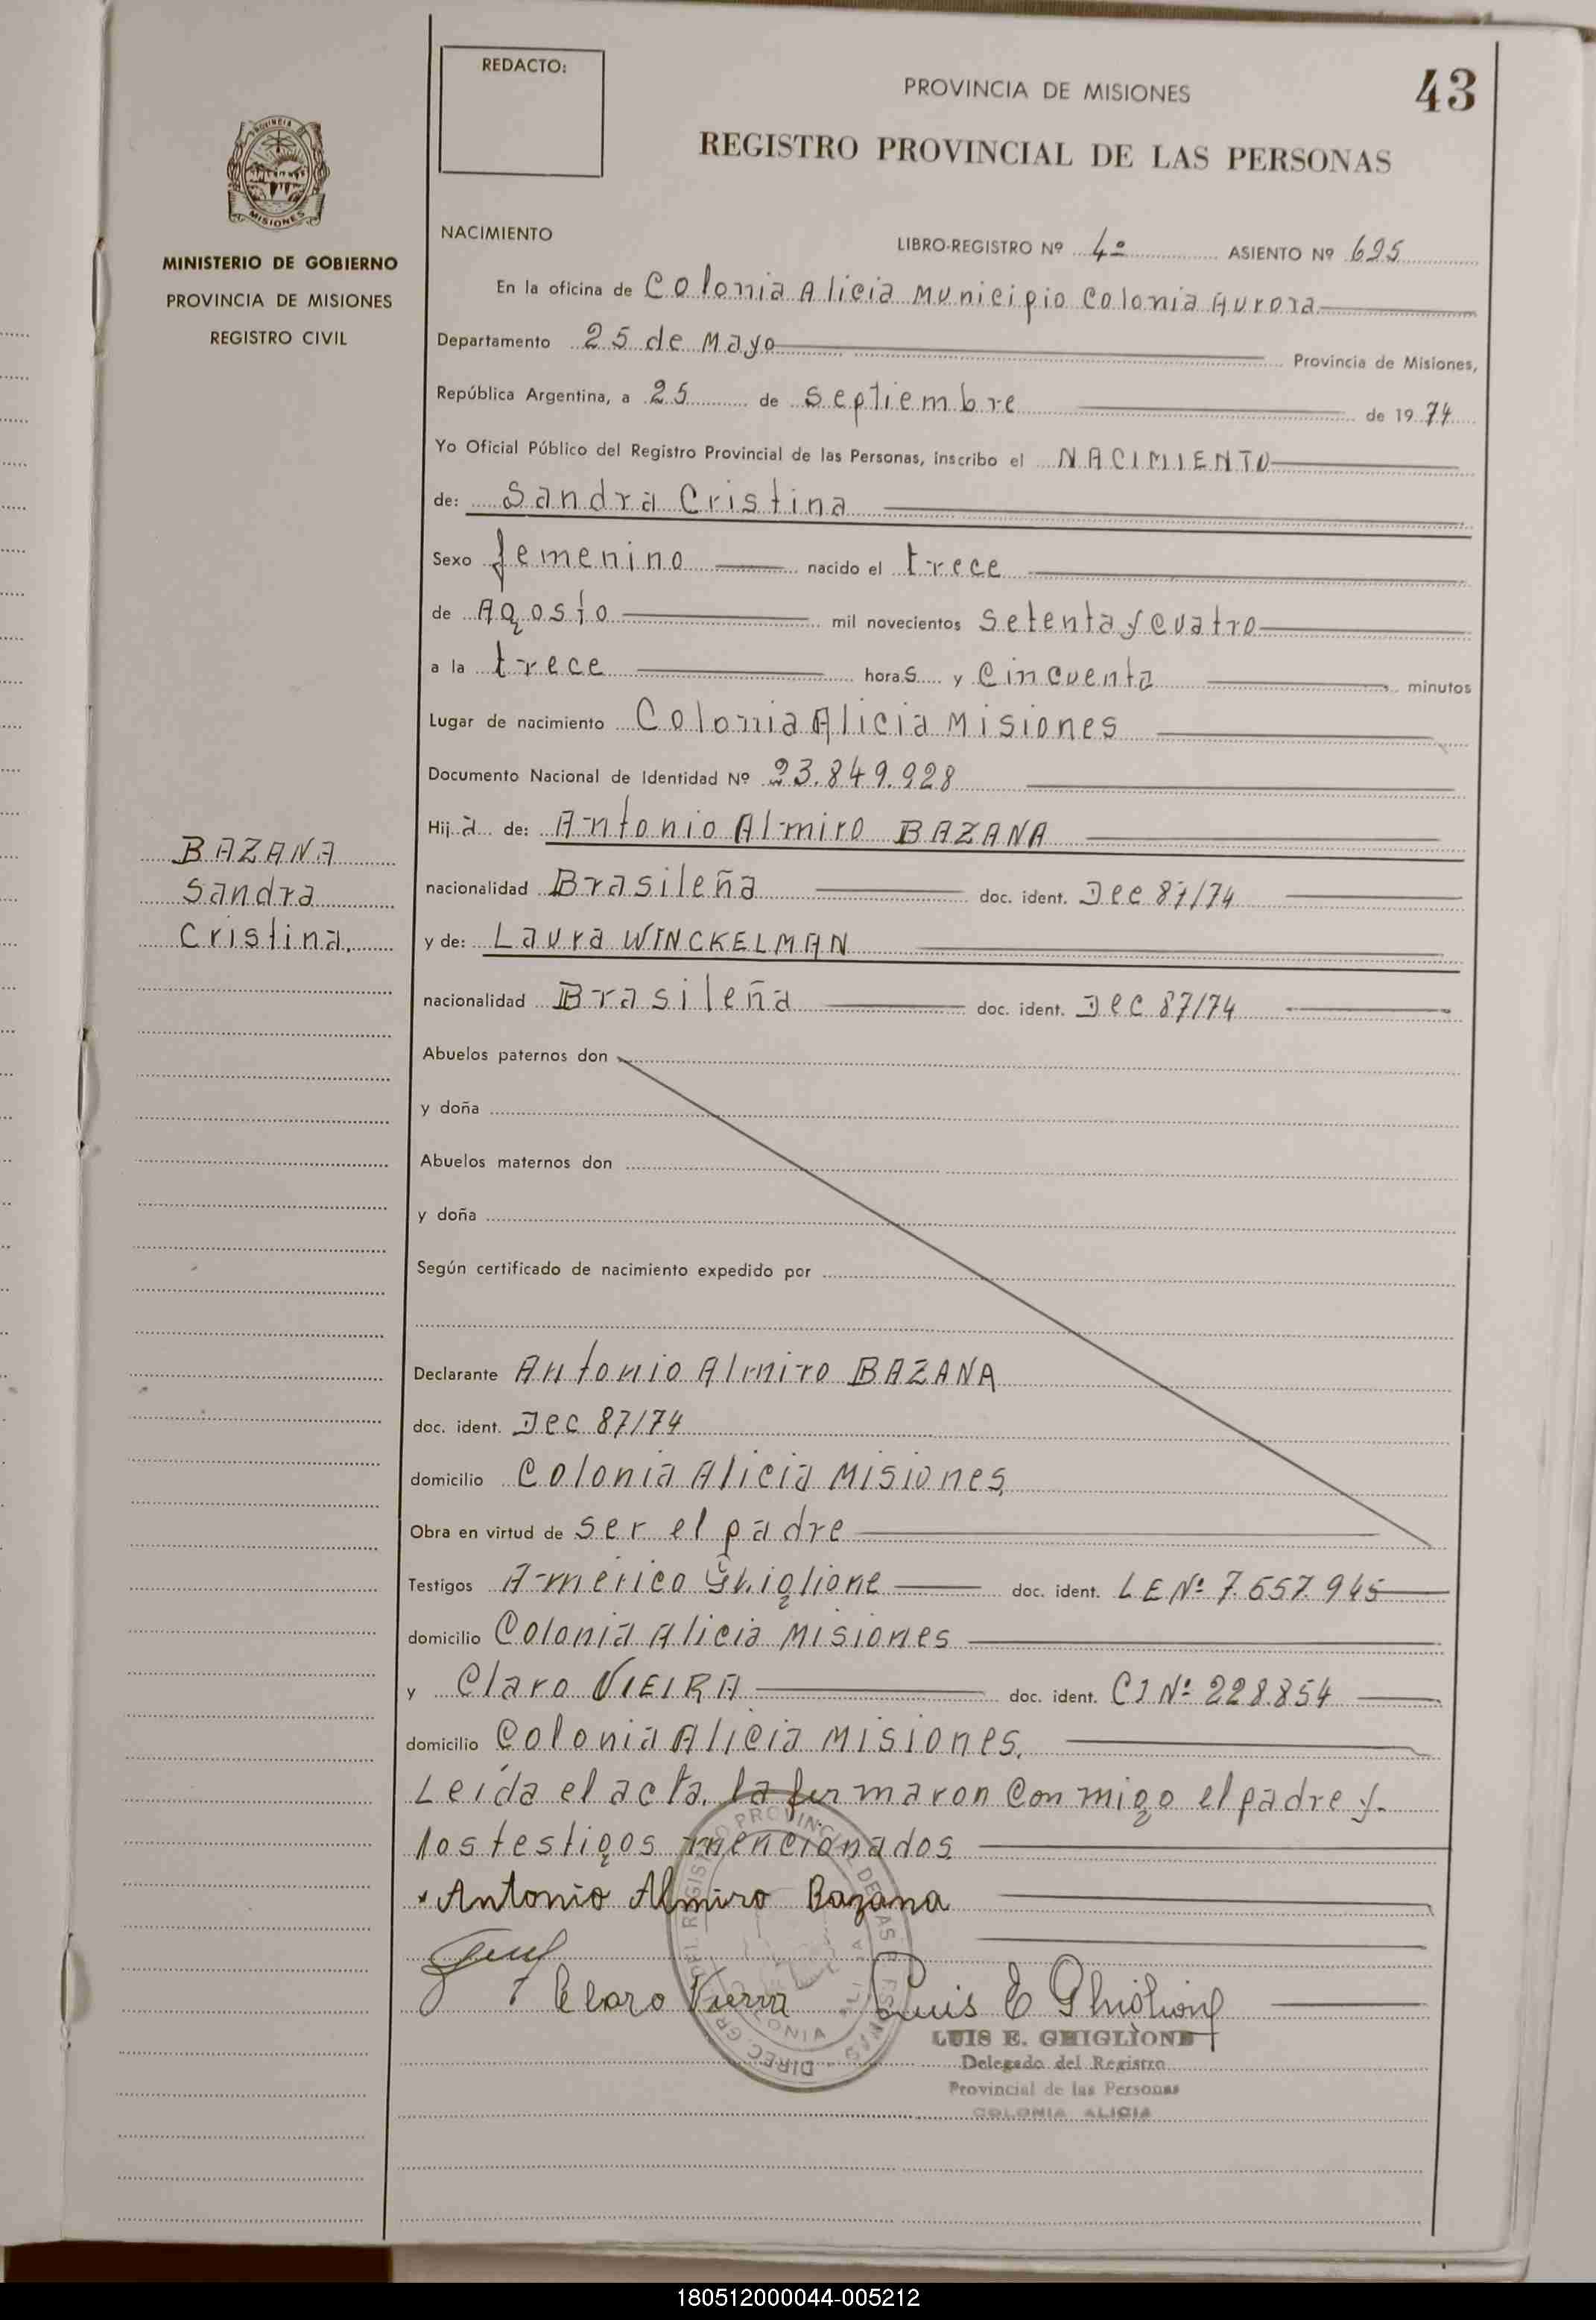 REDACTO:
PROVINCIA DE MISIONES
43
REGISTRO PROVINCIAL DE LAS PERSONAS
PROVINCIA DE
MISIONES
MINISTERIO DE GOBIERNO
PROVINCIA DE MISIONES
REGISTRO CIVIL
NACIMIENTO
LIBRO-REGISTRO Nº 4º ASIENTO Nº 695
En la oficina de Colonia Alicia Municipio Colonia Aurora
Departamento 25 de Mayo Provincia de Misiones,
República Argentina, a 25 de septiembre de 1974
Yo Oficial Público del Registro Provincial de las Personas, inscribo el NACIMIENTO
de: Sandra Cristina
Sexo femenino nacido el trece
de Agosto mil novecientos setenta y cuatro
a la trece horas y cincuenta minutos
Lugar de nacimiento Colonia Alicia Misiones
Documento Nacional de Identidad Nº 23.849.928
Hija de: Antonio Almiro BAZANA
BAZANA
Sandra
Cristina.
nacionalidad Brasileña doc. ident. Dec 87/74
y de: Laura WINCKELMAN
nacionalidad Brasileña doc. ident. Dec 87/74
Abuelos paternos don
y doña
Abuelos maternos don
y doña
Según certificado de nacimiento expedido por
Declarante Antonio Almiro BAZANA
doc. ident. Dec 87/74
domicilio Colonia Alicia Misiones
Obra en virtud de ser el padre
Testigos Américo Ghiglione doc. ident. LE Nº 7.557.945
domicilio Colonia Alicia Misiones
y Claro VIEIRA doc. ident. CI Nº 228.854
domicilio Colonia Alicia Misiones.
Leída el acta, la firmaron conmigo el padre y
los testigos mencionados
Antonio Almiro Bazana
Claro Vieira Luis E Ghiglione
LUIS E. GHIGLIONE
Delegado del Registro
Provincial de las Personas
COLONIA ALICIA
180512000044-005212